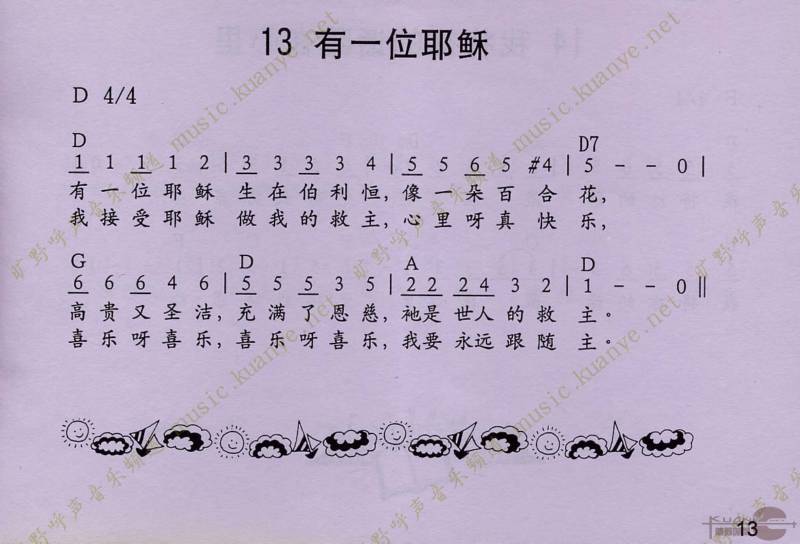 13 有一位耶稣
D 4/4
D D7
1 1 1 1 2 | 3 3 3 3 4 | 5 5 6 5 #4 | 5 - - 0 |
有一位耶稣 生在伯利恒, 像一朵百合花,
我接受耶稣 做我的救主, 心里呀真快乐,
G D A D
6 6 6 4 6 | 5 5 5 3 5 | 22 24 3 2 | 1 - - 0 ‖
高贵又圣洁, 充满了恩慈, 祂是世人的救主。
喜乐呀喜乐, 喜乐呀喜乐, 我要永远跟随主。
旷野呼声音乐频道 music.kuanye.net
13